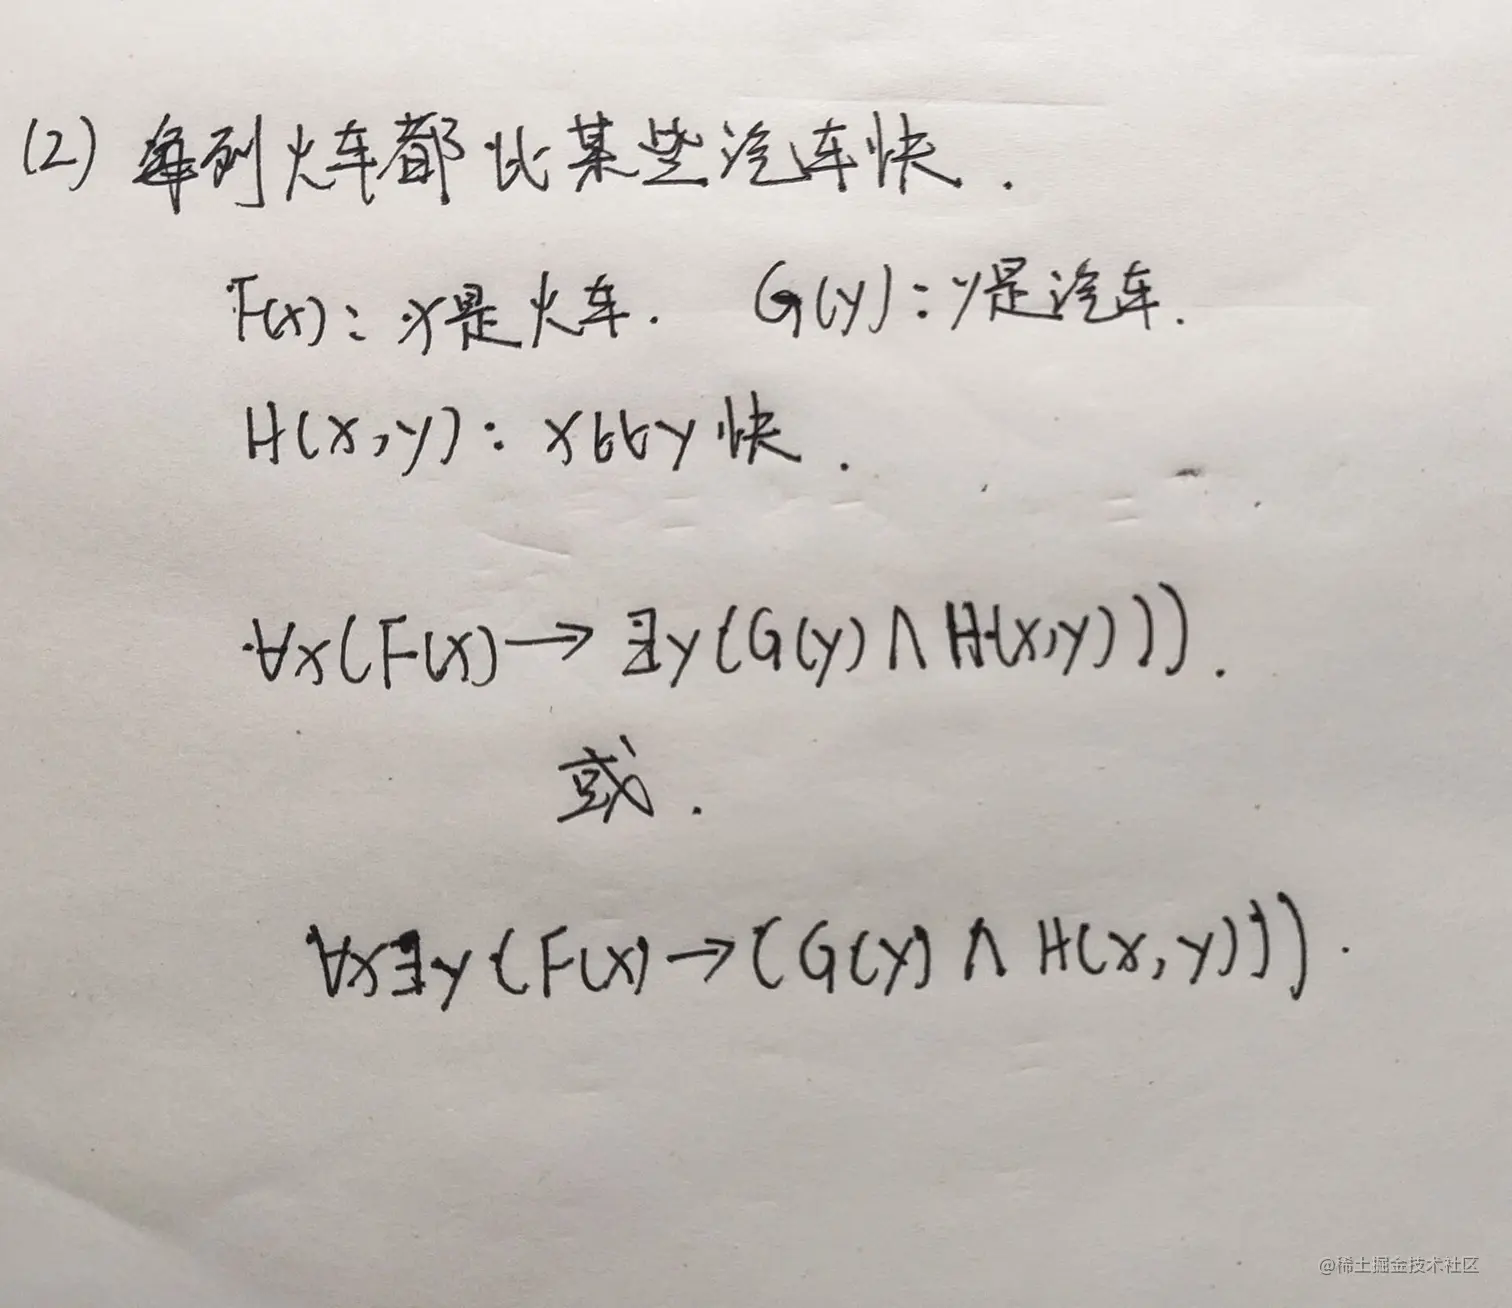 (2) 每列火车都比某些汽车快.
F(x): x是火车. G(y): y是汽车.
H(x,y): x比y快.
∀x(F(x)→∃y(G(y)∧H(x,y))).
或.
∀x∃y(F(x)→(G(y)∧H(x,y))).
@稀土掘金技术社区